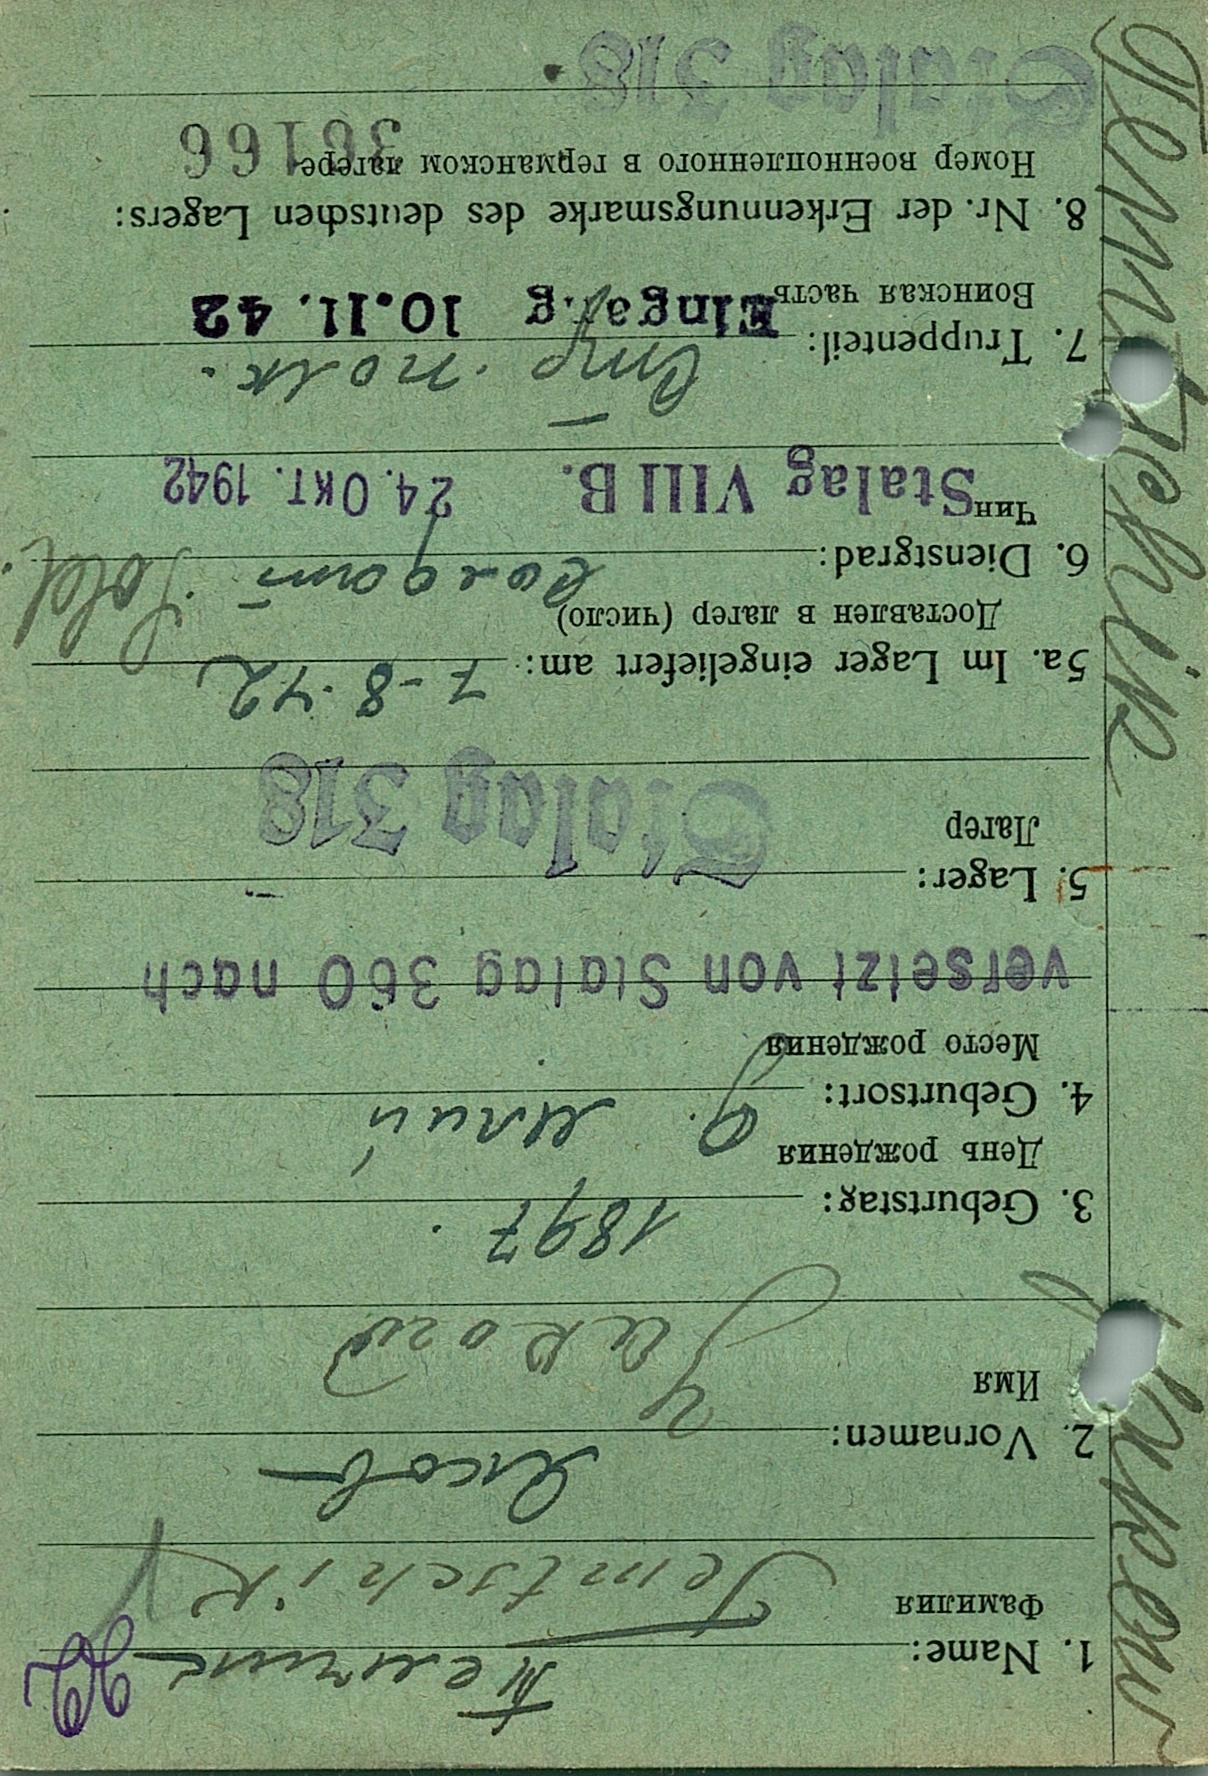 1. Name:
Фамилия
Temtschik
2. Vornamen: Яков
Имя
Jakow
3. Geburtstag: 1897.
День рождения
4. Geburtsort:
Место рождения
versetzt von Stalag 360 nach
5. Lager:
Лагер
Stalag 318
5a. Im Lager eingeliefert am: 7-8.42
Доставлен в лагер (число)
6. Dienstgrad: Sold.
Чин
Stalag VIII B. 24. Okt. 1942
7. Truppenteil: стр. полк.
Воинская часть
Eingang 10. 11. 42
8. Nr. der Erkennungsmarke des deutschen Lagers:
Номер военнопленного в германском лагере
36166
Stalag 318
Jakow